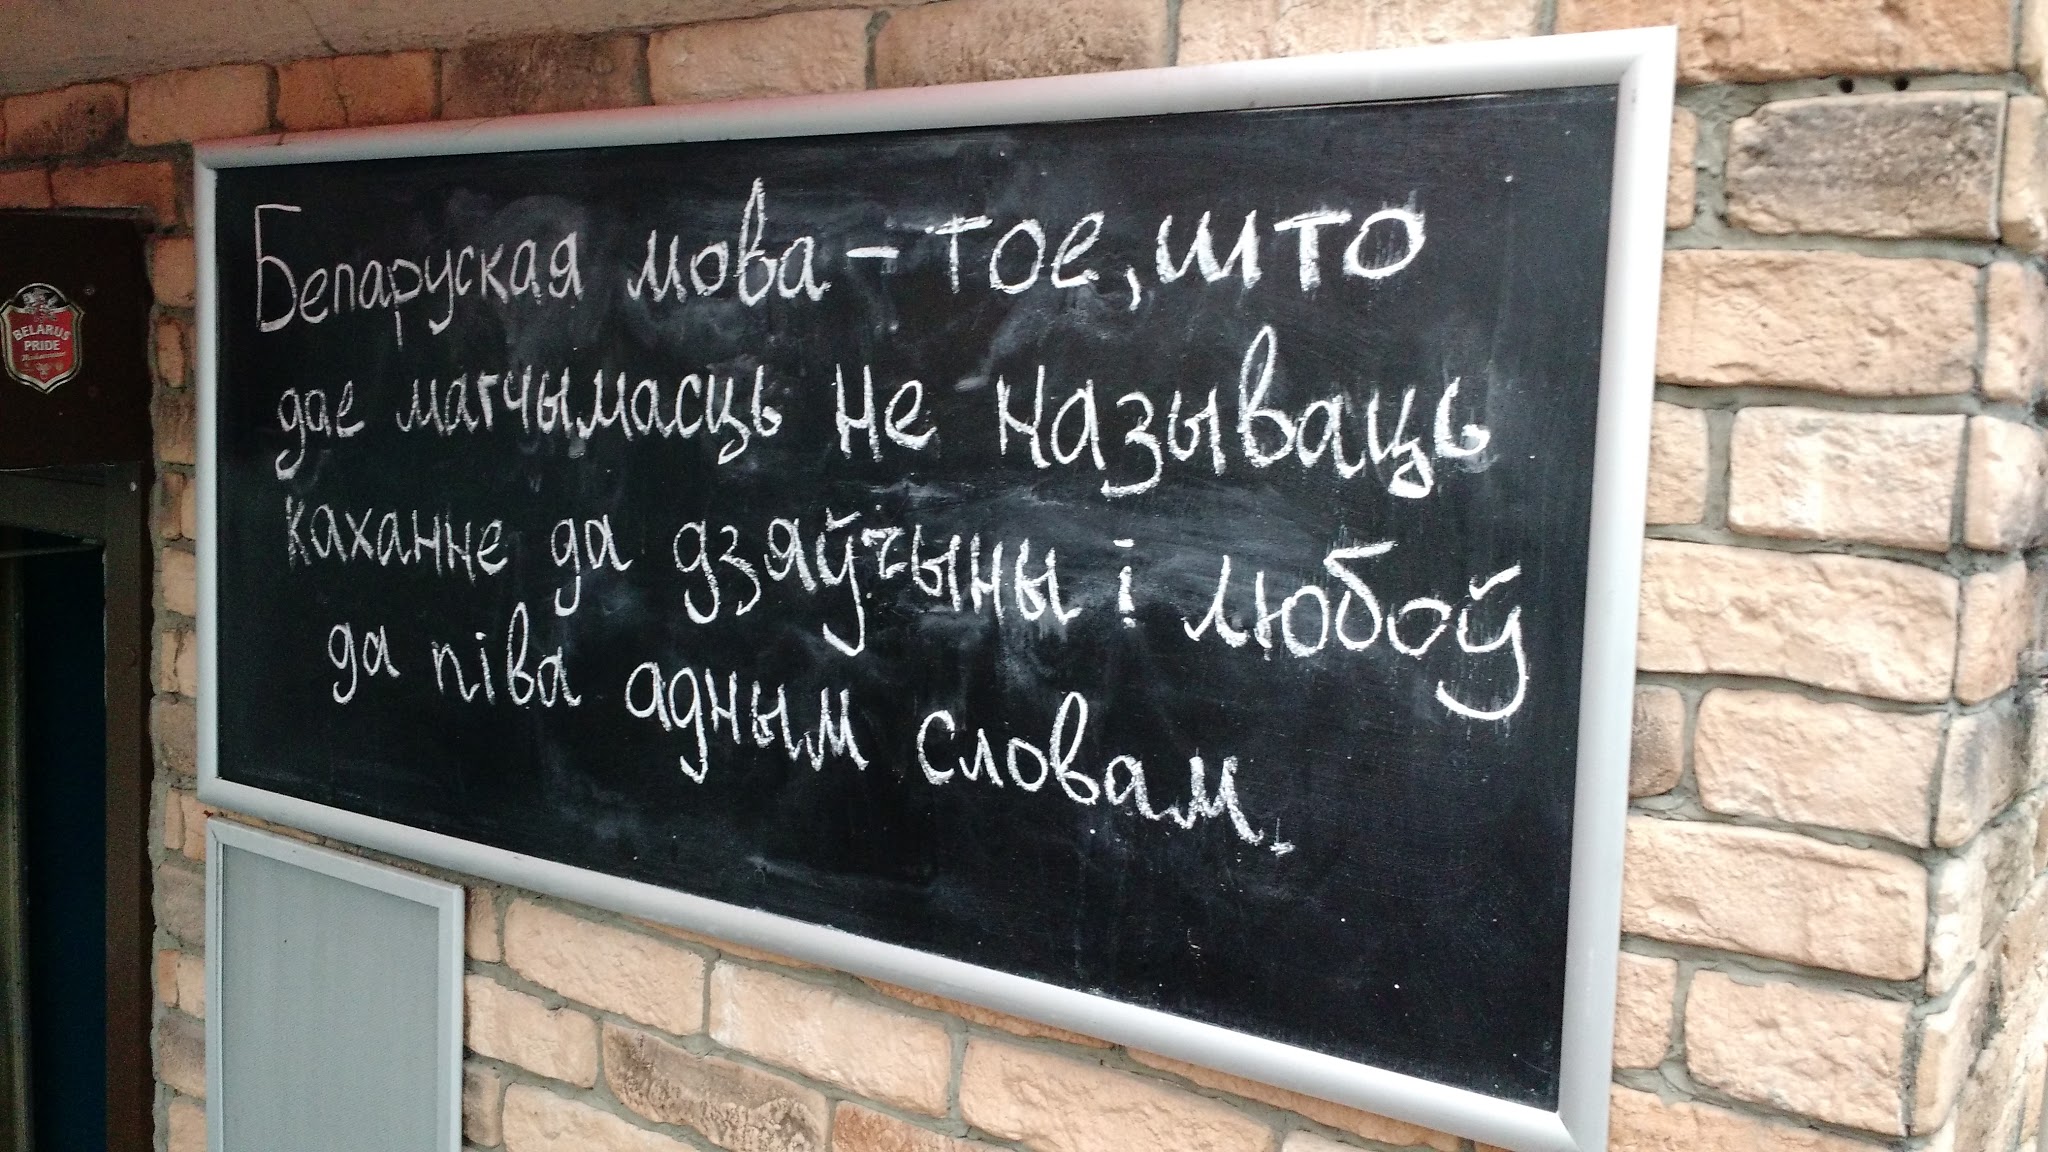 Беларуская мова – тое, што
дае магчымасць не называць
каханне да дзяўчыны і любоў
да піва адным словам.
BELARUS
PRIDE